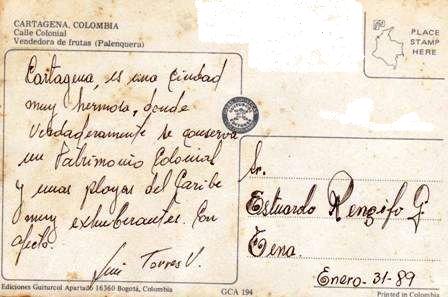 CARTAGENA, COLOMBIA
Calle Colonial
Vendedora de frutas (Palenquera)
PLACE
STAMP
HERE
Cartagena, es una ciudad
muy hermosa, donde
verdaderamente se conserva
un Patrimonio Colonial
y unas playas del Caribe
muy exhuberantes. Con
afecto.
Luis Torres V.
Sr.
Estuardo Rengifo G.
Tena.
Enero-31-89
Ediciones Guiturcol Apartado 16360 Bogotá, Colombia
GCA 194
Printed in Colombia